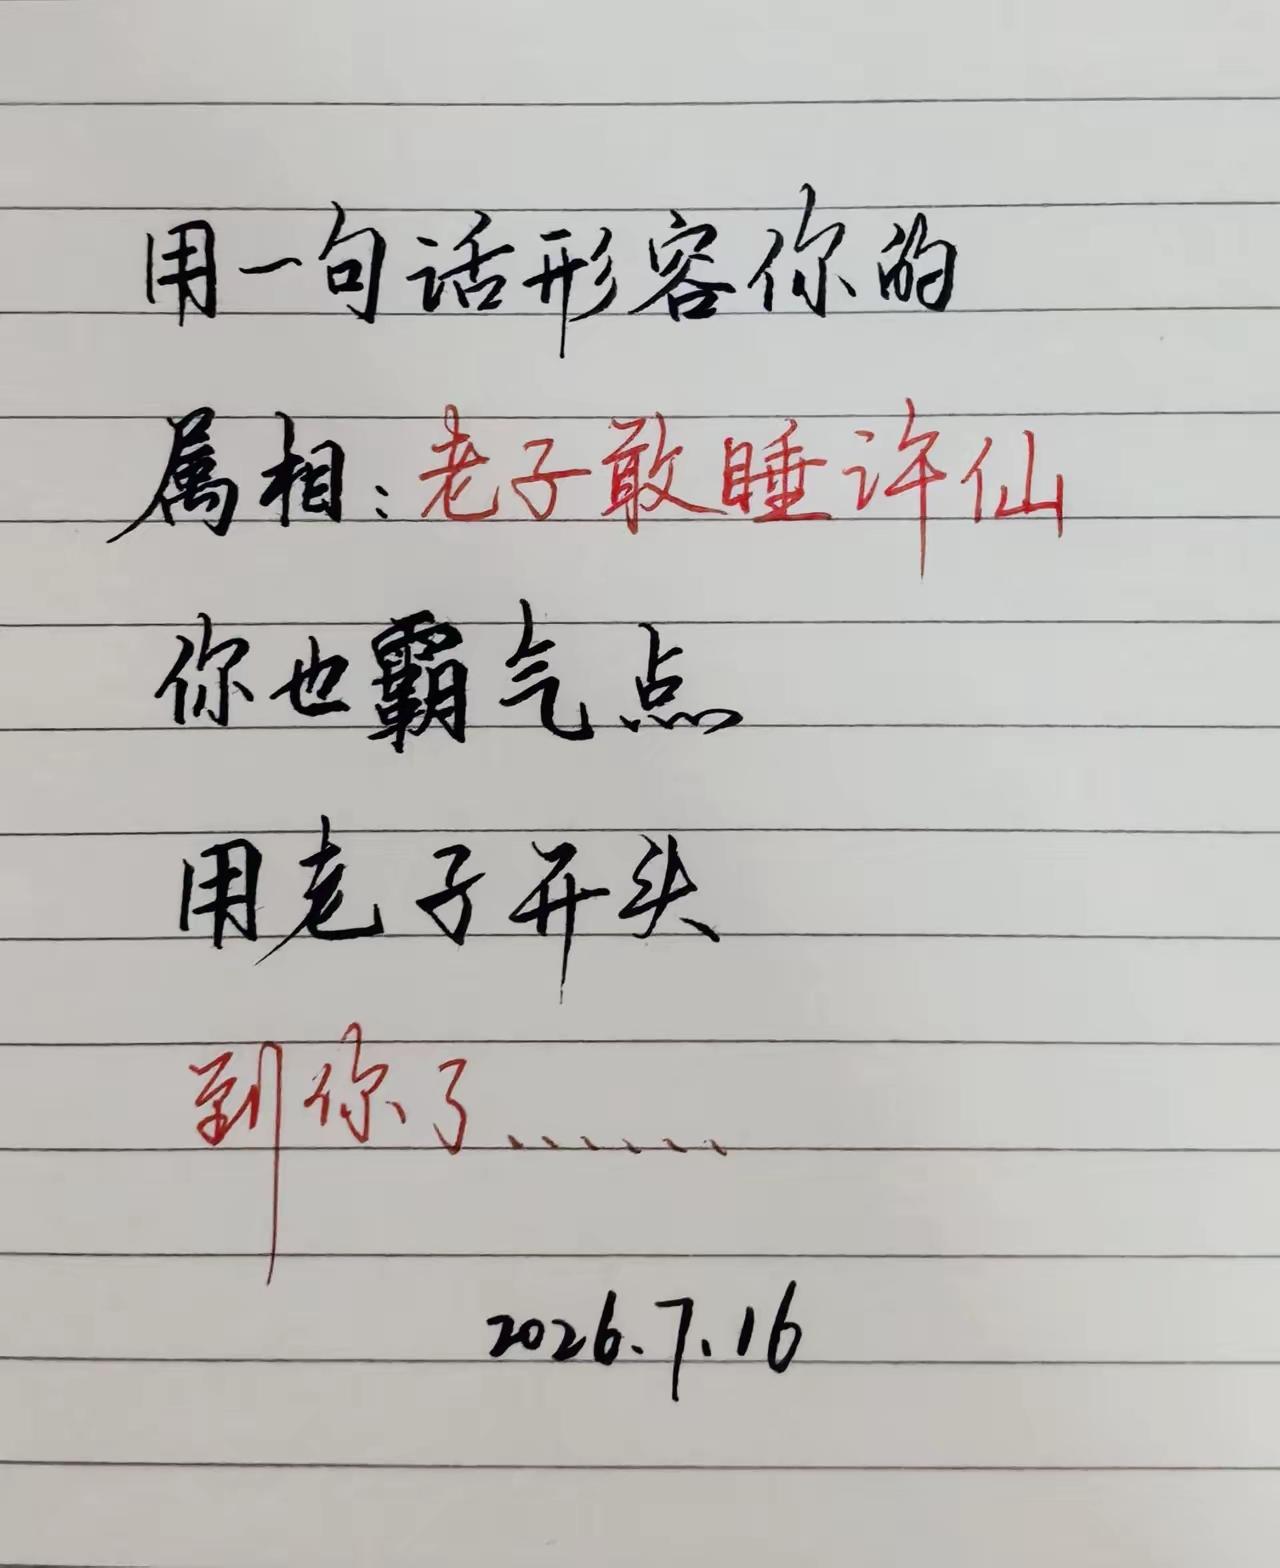 用一句话形容你的
属相:老子敢睡许仙
你也霸气点
用老子开头
到你了......
2026.7.16